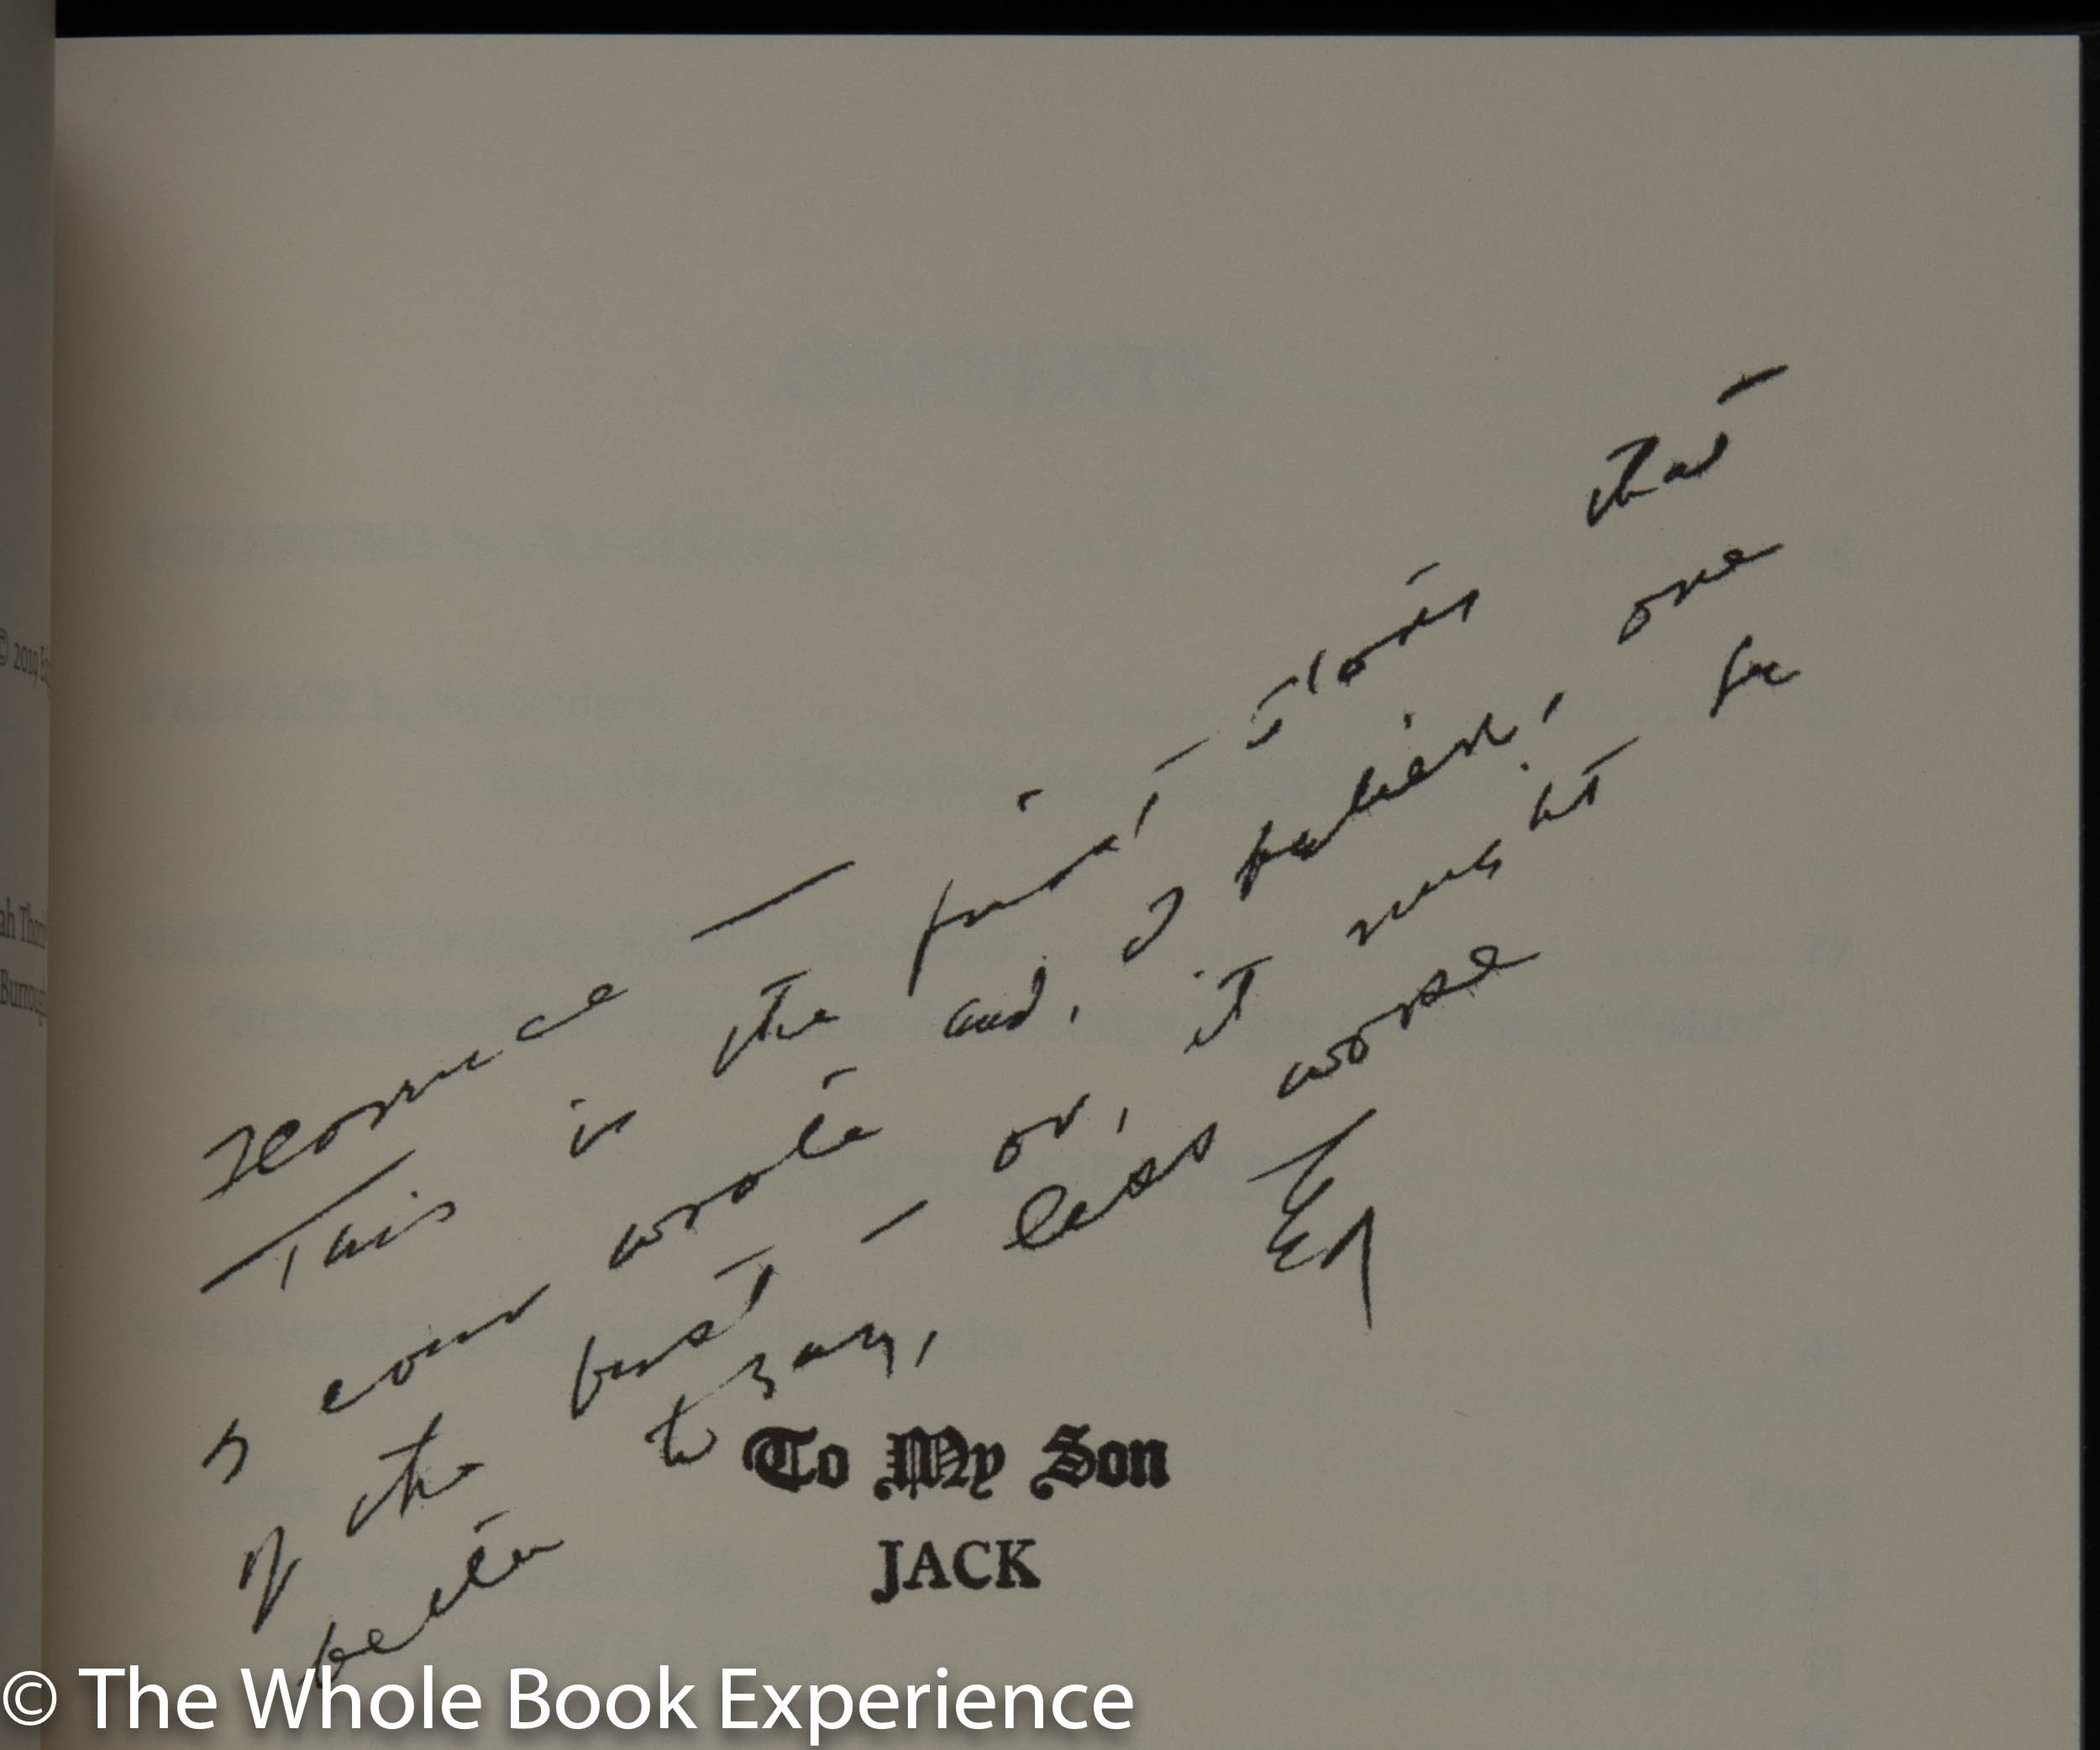 Florence —
This is the first story that
I ever wrote and, I believe, one
of the best — or, it might be
better to say, less worse
Ed
To My Son
JACK
© 2019
© The Whole Book Experience